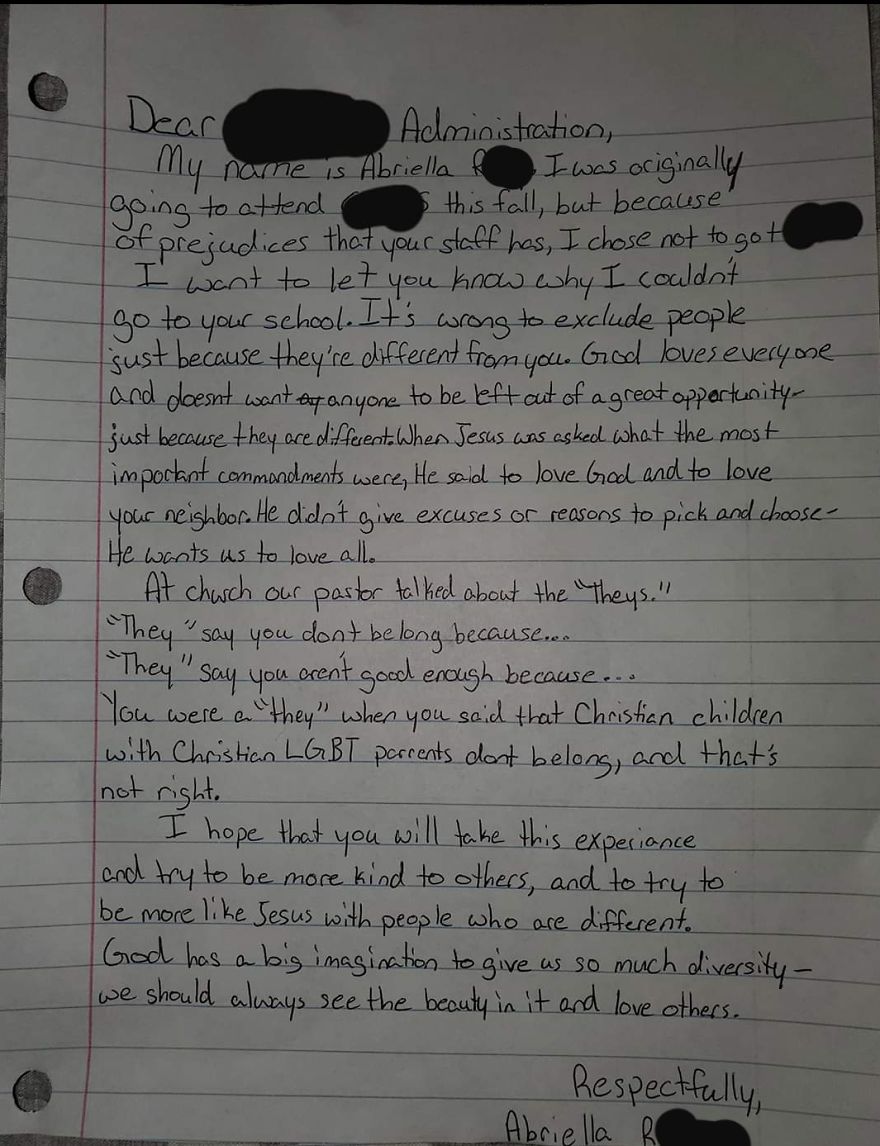 Dear Administration,
My name is Abriella R I was originally
going to attend s this fall, but because
of prejudices that your staff has, I chose not to go t
I want to let you know why I couldn't
go to your school. It's wrong to exclude people
just because they're different from you. God loves everyone
and doesnt want anyone to be left out of a great opportunity-
just because they are different. When Jesus was asked what the most
important commandments were, He said to love God and to love
your neighbor. He didn't give excuses or reasons to pick and choose-
He wants us to love all.
At church our pastor talked about the "Theys."
"They" say you dont belong because...
"They" say you aren't good enough because...
You were a "they" when you said that Christian children
with Christian LGBT parrents dont belong, and that's
not right.
I hope that you will take this experiance
and try to be more kind to others, and to try to
be more like Jesus with people who are different.
God has a big imagination to give us so much diversity-
we should always see the beauty in it and love others.
Respectfully,
Abriella R